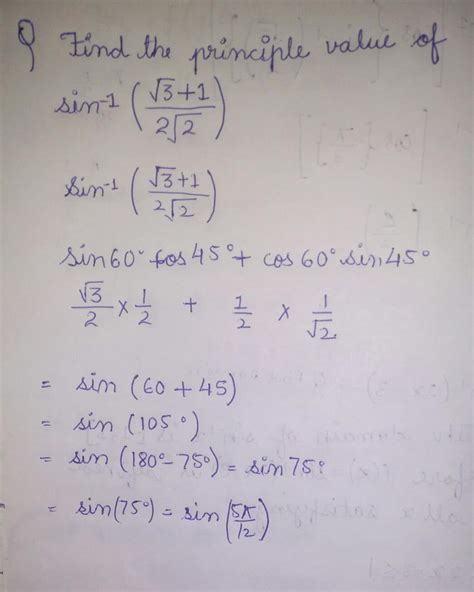 Q Find the principle value of
sin⁻¹ (√3+1 / 2√2)
sin⁻¹ (√3+1 / 2√2)
sin60° cos45° + cos60° sin45°
√3/2 × 1/2 + 1/2 × 1/√2
= sin (60 + 45)
= sin (105°)
= sin (180° - 75°) = sin 75°
= sin(75°) = sin (5π/12)